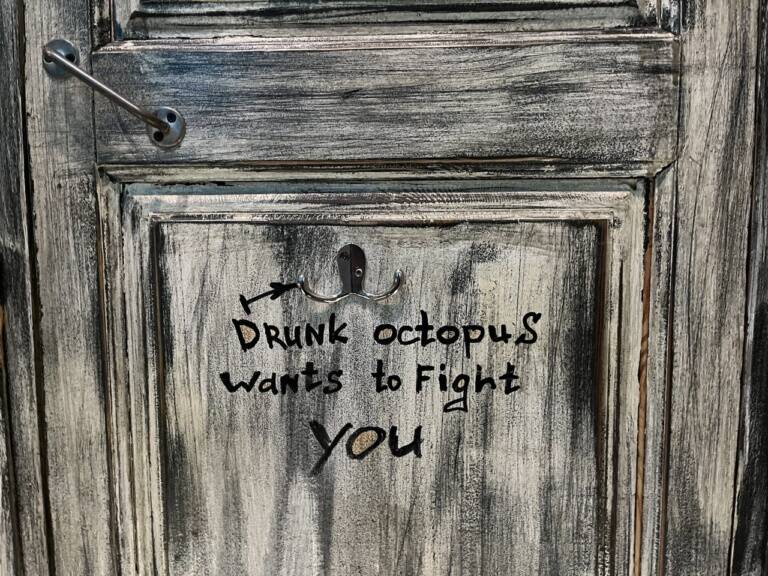 DRUNK octopus
wants to Fight
YOU